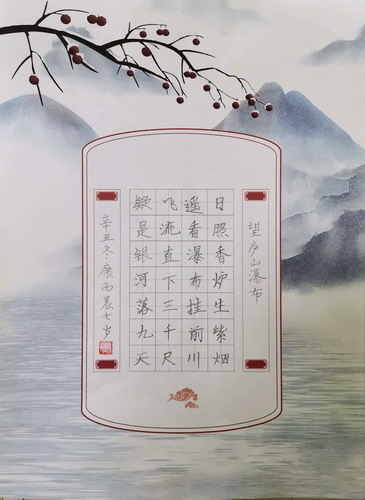 望庐山瀑布
日照香炉生紫烟
遥看瀑布挂前川
飞流直下三千尺
疑是银河落九天
辛丑冬廉雨晨七岁